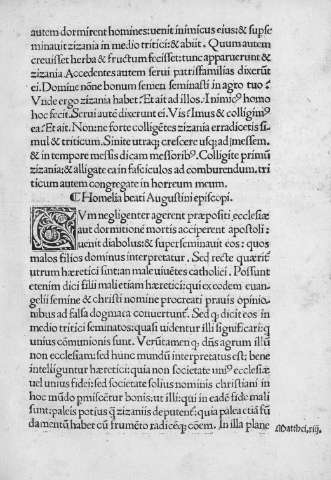 autem dormirent homines: uenit inimicus eius: & supse
minauit zizania in medio tritici: & abiit. Quum autem
creuisset herba & fructum fecisset: tunc apparuerunt &
zizania Accedentes autem serui patrisfamilias dixerūt
ei. Domine nōne bonum semen seminasti in agro tuo?
Vnde ergo zizania habet? Et ait ad illos. Inimicꝰ homo
hoc fecit. Serui autē dixerunt ei. Vis? Imus & colligimꝰ
ea? Et ait. Non: ne forte colligētes zizania eradicetis si
mul & triticum. Sinite utraq; crescere usq; ad messem.
& in tempore messis dicam messoribꝰ. Colligite primū
zizania: & alligate ea in fasciculos ad comburendum. tri
ticum autem congregate in horreum meum.
¶ Homelia beati Augustini episcopi.
CVm negligenter agerent præpositi ecclesiæ
aut dormitionē mortis acciperent apostoli:
uenit diabolus: & superseminauit eos: quos
malos filios dominus interpretatur. Sed recte quæritᷣ
utrum hæretici sint: an male uiuētes catholici. Possunt
etenim dici filii mali etiam hæretici: qui ex eodem euan-
gelii semine & christi nomine procreati prauis opinio-
nibus ad falsa dogmata conuertunt᷑. Sed q; dicit eos in
medio tritici seminatos: quasi uident᷑ illi significari: q
unius cōmunionis sunt. Verūtamen q; dn̄s agrum illū
non ecclesiam: sed hunc mundū interpretatus est: bene
intelliguntur hæretici: quia non societate uniꝰ ecclesiæ
uel unius fidei: sed societate solius nominis christiani in
hoc mūdo pmiscētur bonis: ut illi: qui in eadē fide mali
sunt: paleis potius q̄ zizaniis deputent᷑: quia palea etiā fū
damentū habet cū frumēto radicēq; cōem. In illa plane
Matthei. xiij.